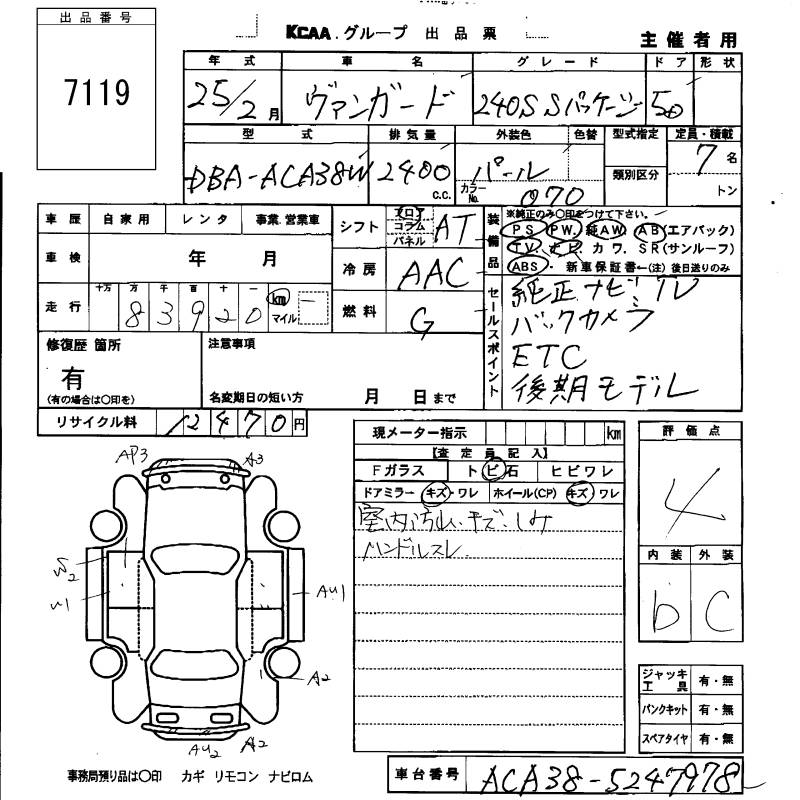 出品番号
7119
KCAA グループ 出品票
主催者用
年式 車名 グレード ドア 形状
25/2月 ヴァンガード 240S Sパッケージ 5
型式 排気量 外装色 色替 型式指定 定員・積載
DBA-ACA38W 2400 c.c. パール 類別区分 7名
カラーNo. 070 トン
車歴 自家用 レンタ 事業.営業車
シフト フロア コラム パネル AT
装備品 ※純正のみ〇印をつけて下さい。
PS PW. 純AW AB(エアバック)
TV. ナビ. カワ. SR(サンルーフ)
ABS. 新車保証書←(注)後日送りのみ
車検 年 月
冷房 AAC
走行 十万 万 千 百 十 一 km マイル
8 3 9 2 0
燃料 G
セールスポイント
純正ナビTV
バックカメラ
ETC
後期モデル
修復歴 箇所
有
(有の場合は〇印を)
注意事項
名変期日の短い方 月 日まで
リサイクル料 12470円
現メーター指示 km
【査定員記入】
Fガラス トビ石 ヒビワレ
ドアミラー キズ・ワレ ホイール(CP) キズ ワレ
室内汚れ.キズ.シミ
ハンドルスレ
評価点
4
内装 外装
b C
AP3 A3
W2
W1
AU1
A2
AU2 A2
ジャッキ工具 有・無
パンクキット 有・無
スペアタイヤ 有・無
事務局預り品は〇印 カギ リモコン ナビロム
車台番号 ACA38-5247978